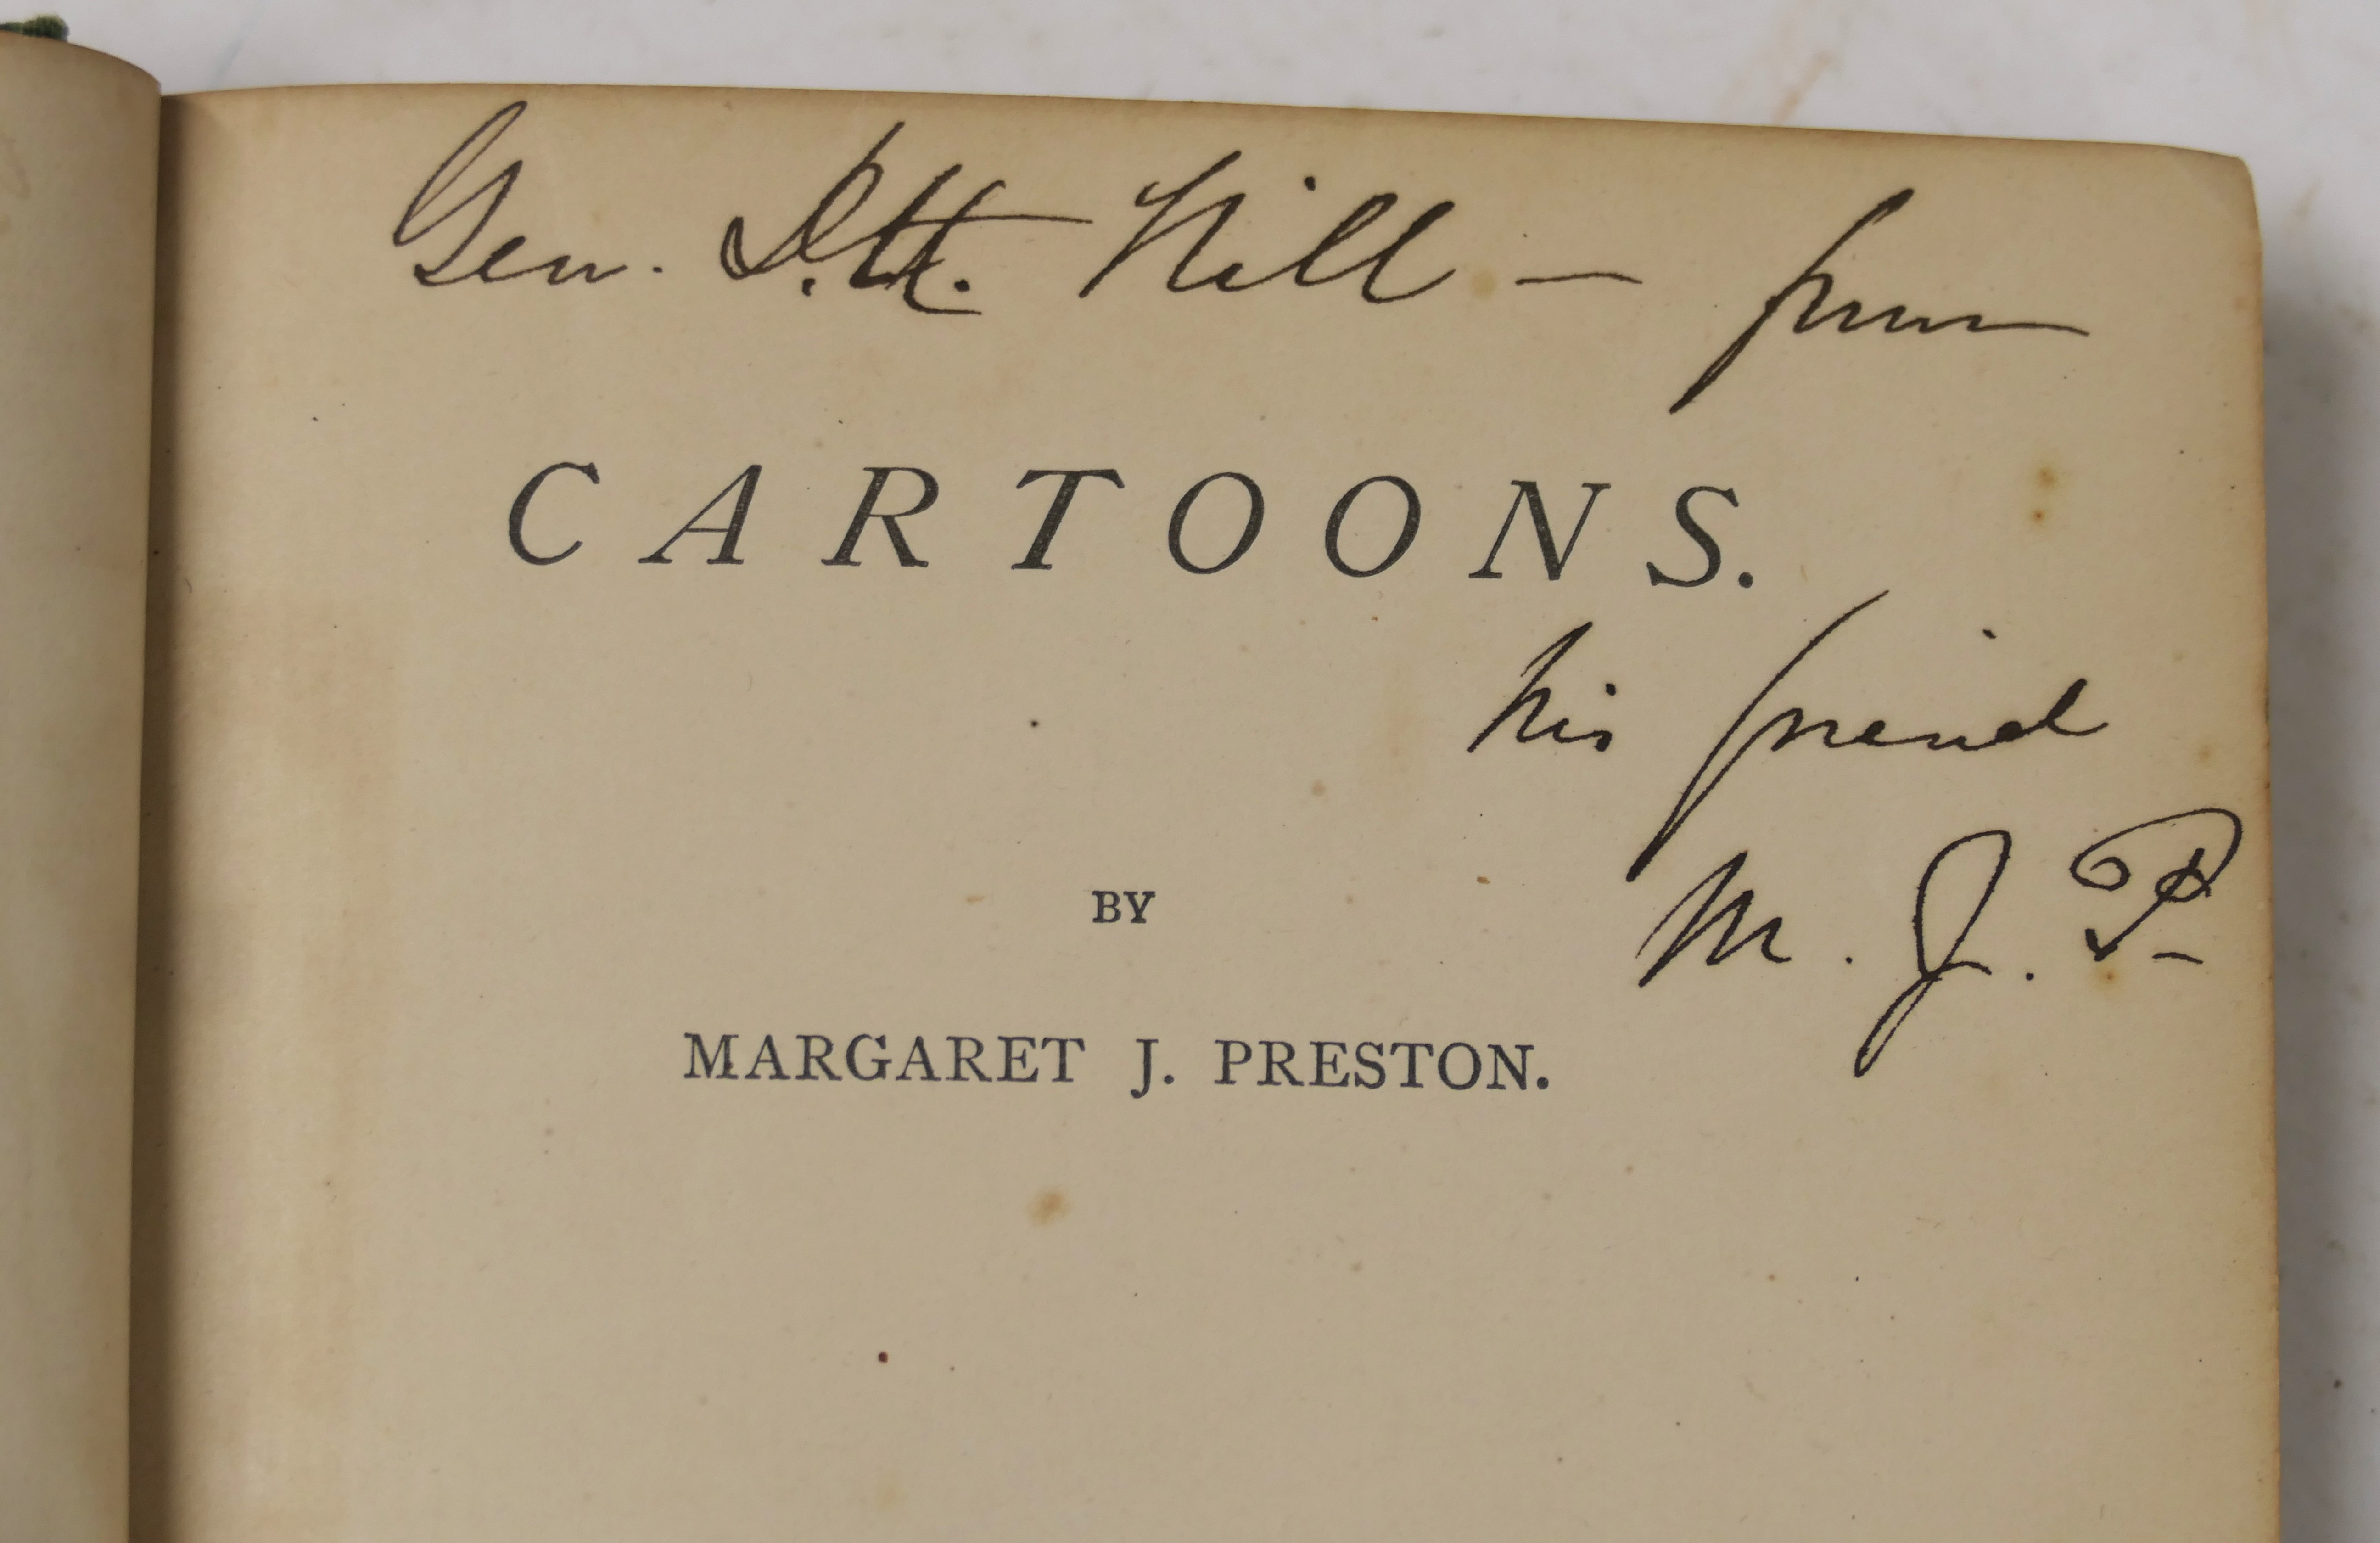 Gen. D.H. Hill — from
CARTOONS.
his friend
M. J. P—
BY
MARGARET J. PRESTON.